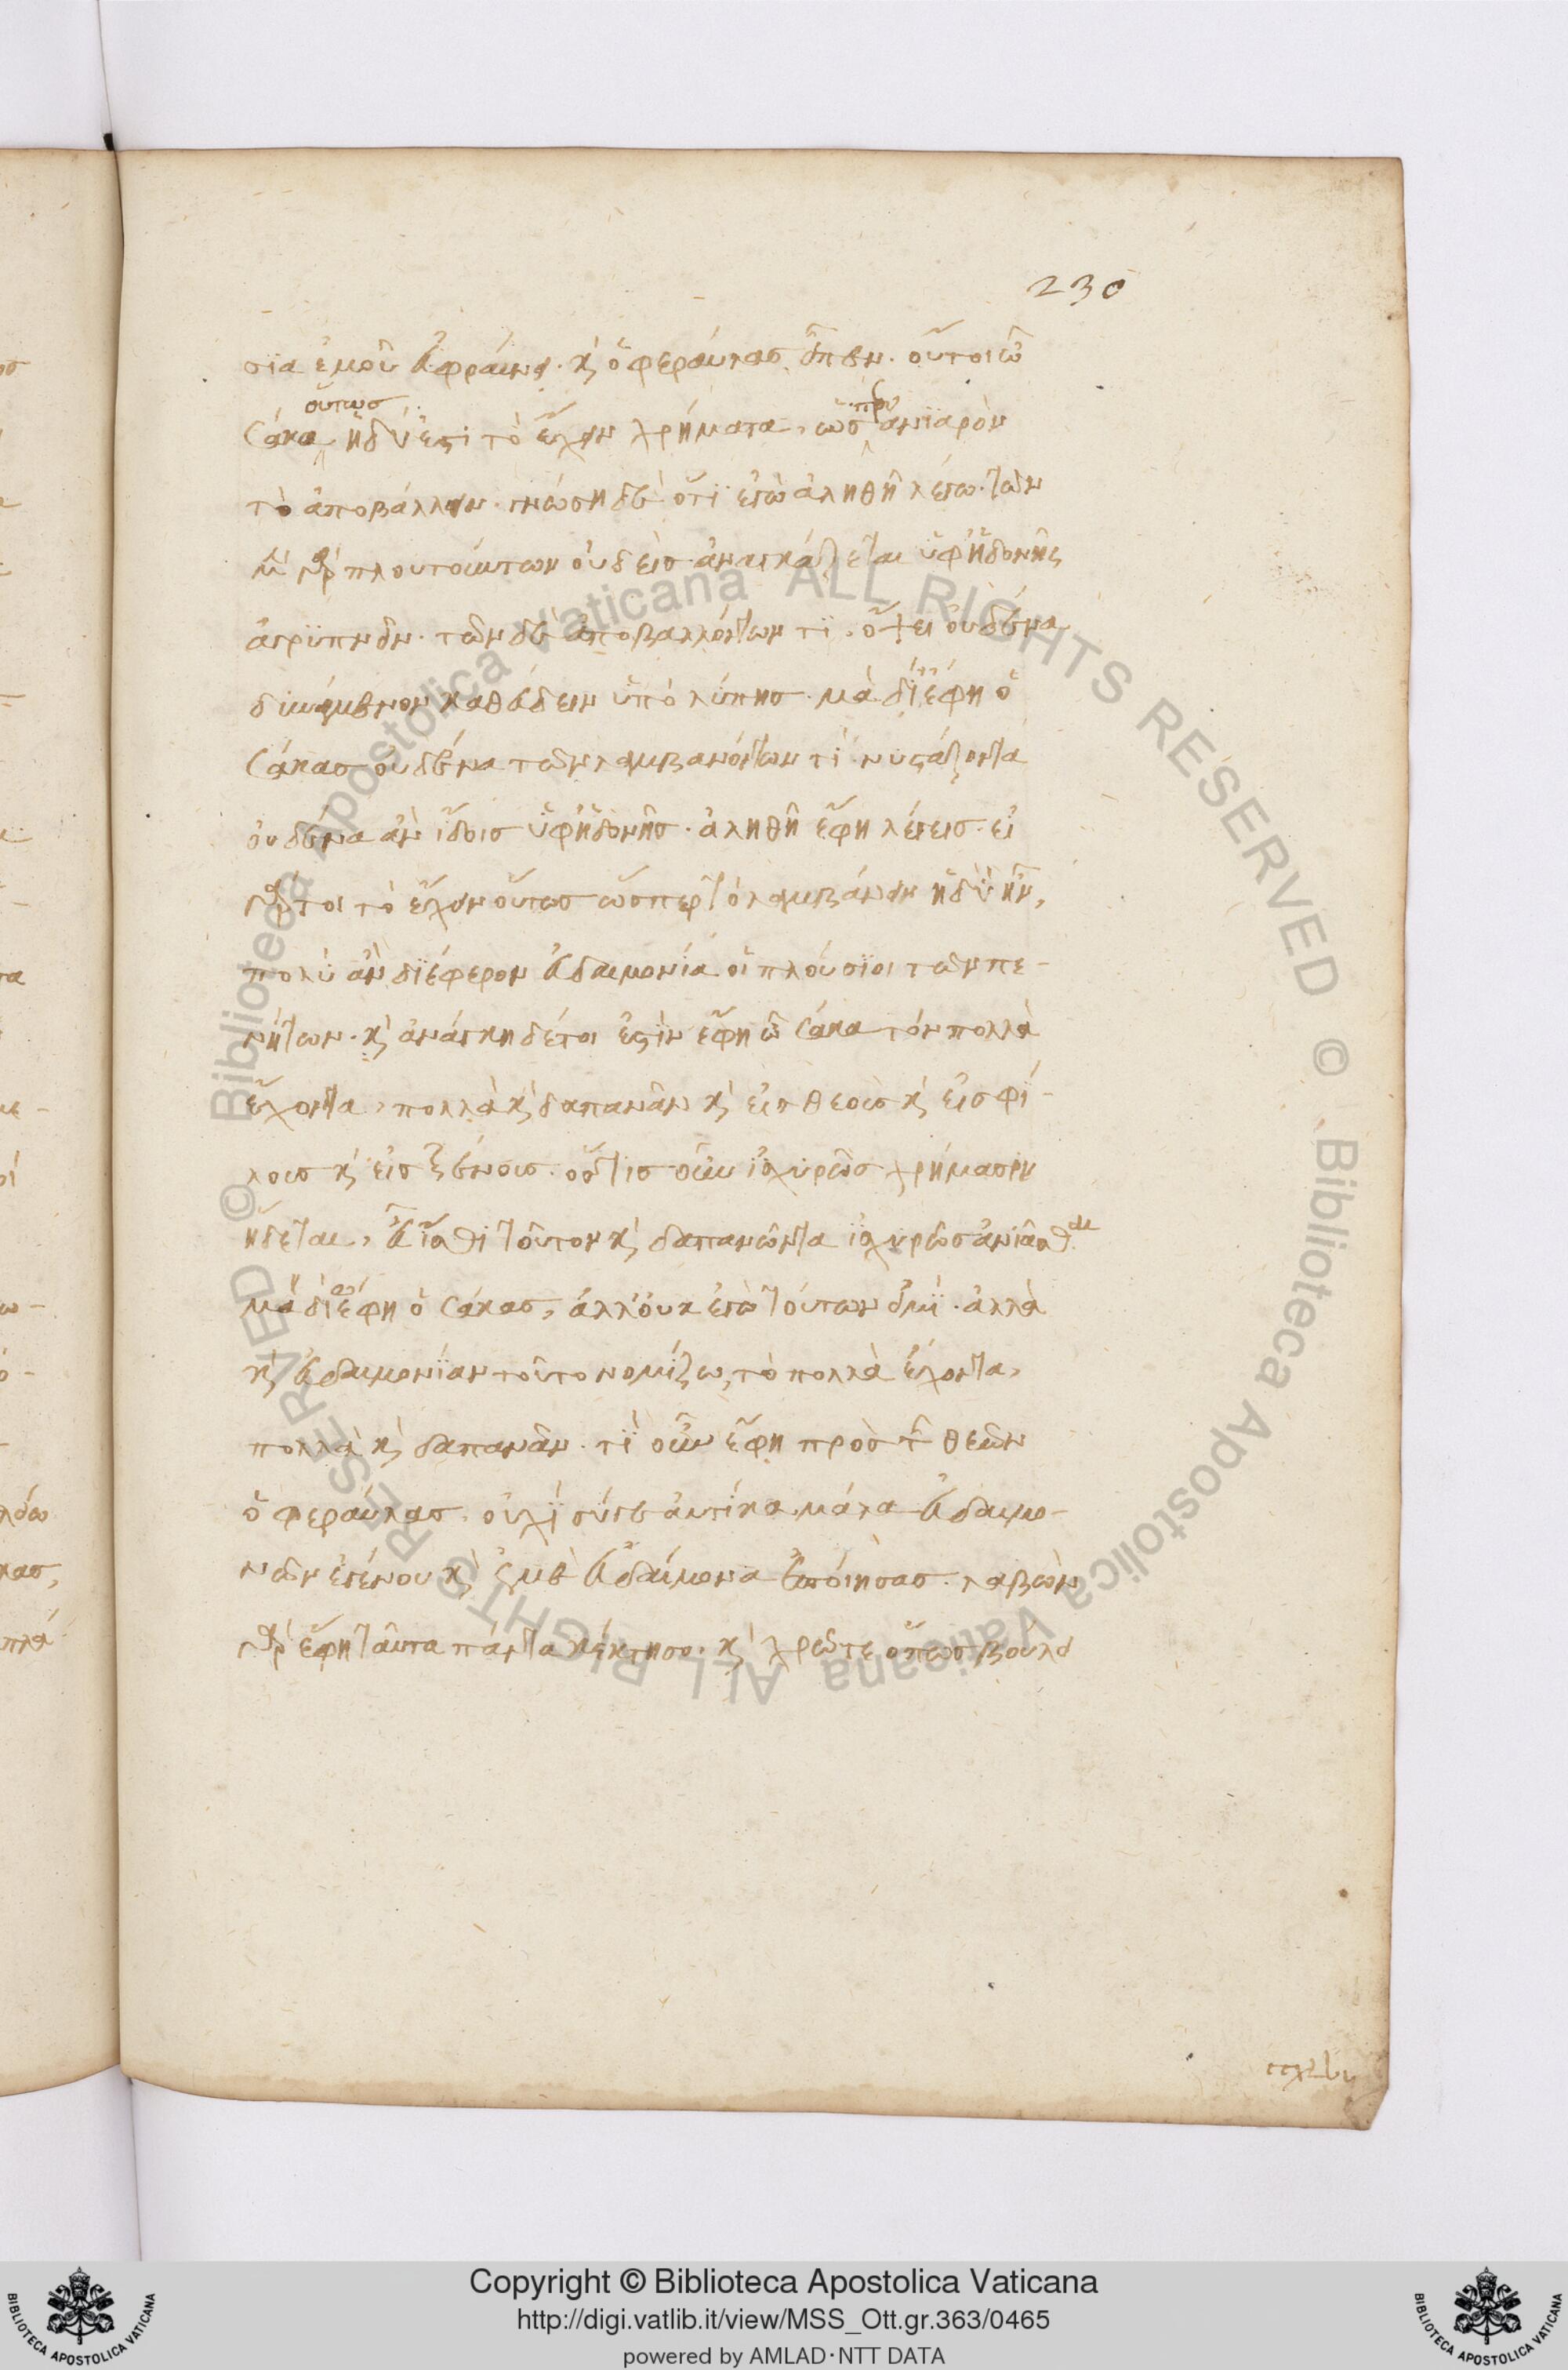 230
σϊα ἐμοῦ εὐφραίνει. καὶ ὁ φεραύλας εἶπεν. οὔτοι ὦ
σάκα οὕτως ἡδύ ἐστι τὸ ἔχειν χρήματα, ὥσπερ ἀνϊαρὸν
τὸ ἀποβάλλειν. γνώση δὲ ὅτι ἐγὼ ἀληθῆ λέγω. τῶν
μὲν γὰρ πλουτούντων οὐδεὶς ἀναγκάζεται ὑφ' ἡδονῆς
ἀγρϋπνεῖν. τῶν δὲ ἀποβαλλόντων τϊ, ὄψει οὐδένα
δυνάμενον καθεύδειν ὑπὸ λύπης. μὰ δί' ἔφη ὁ
σάκας οὐδένα τῶν λαμβανόντων τὶ νυστάζοντα
οὐδένα ἂν ἴδοις ὑφ' ἡδονῆς. ἀληθῆ ἔφη λέγεις. εἰ
γάρ τοι τὸ ἔχειν οὕτως ὥσπερ τὸ λαμβάνειν ἡδὺ ἦν,
πολὺ ἂν διέφερον εὐδαιμονία οἱ πλούσϊοι τῶν πε-
νήτων. καὶ ἀνάγκη δέ τοι ἐστὶν ἔφη ὦ σάκα τὸν πολλὰ
ἔχοντα, πολλὰ καὶ δαπανᾶν καὶ εἰς θεοὺς καὶ εἰς φί-
λους καὶ εἰς ξένους. ὅστις οὖν ἰσχυρῶς χρήμασιν
ἥδεται, εὖ ἴσθι τοῦτον καὶ δαπανῶντα ἰσχυρῶς ἀνιᾶσθαι
μὰ δί' ἔφη ὁ σάκας, ἀλλ' οὐκ ἐγὼ τούτων εἰμϊ. ἀλλὰ
καὶ εὐδαιμονίαν τοῦτο νομίζω, τὸ πολλὰ ἔχοντα,
πολλὰ καὶ δαπανᾶν. τϊ οὖν ἔφη πρὸς τῶν θεῶν
ὁ φεραύλας. οὐχὶ σύγε αὐτίκα μάλα εὐδαίμω-
νῶν ἐγένου καὶ ἐμὲ εὐδαίμονα ἐποίησας. λαβὼν
γὰρ ἔφη ταῦτα πάντα κέκτησο. καὶ χρῶ τε ὅπως βούλει